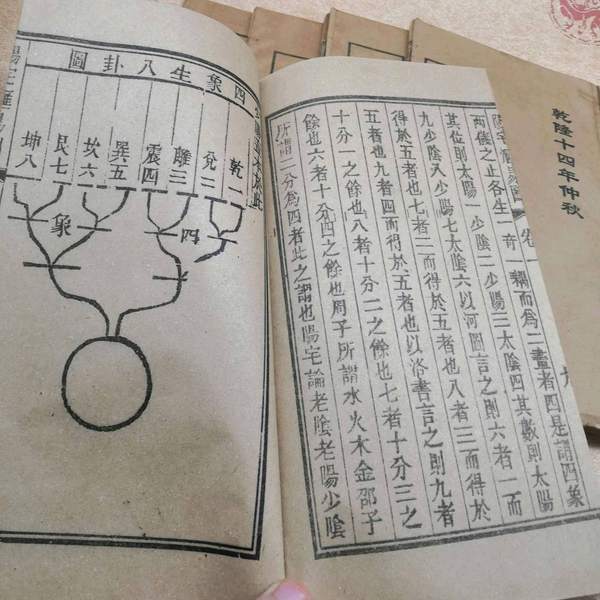 乾隆十四年仲秋
卷一
兩儀之止各生一奇一耦而爲二畫者四是謂四象
其位則太陽一少陰二少陽三太陰四其數則太陽
九少陰八少陽七太陰六以河圖言之則六者一而
得於五者也七者二而得於五者也八者三而得於
五者也九者四而得於五者也以洛書言之則九者
十分一之餘也八者十分二之餘也七者十分三之
餘也六者十分四之餘也周子所謂水火木金邵子
所謂二分為四者此之謂也陽宅論老陰老陽少陰
四象生八卦圖
乾一
兌二
離三
震四
巽五
坎六
艮七
坤八
四象